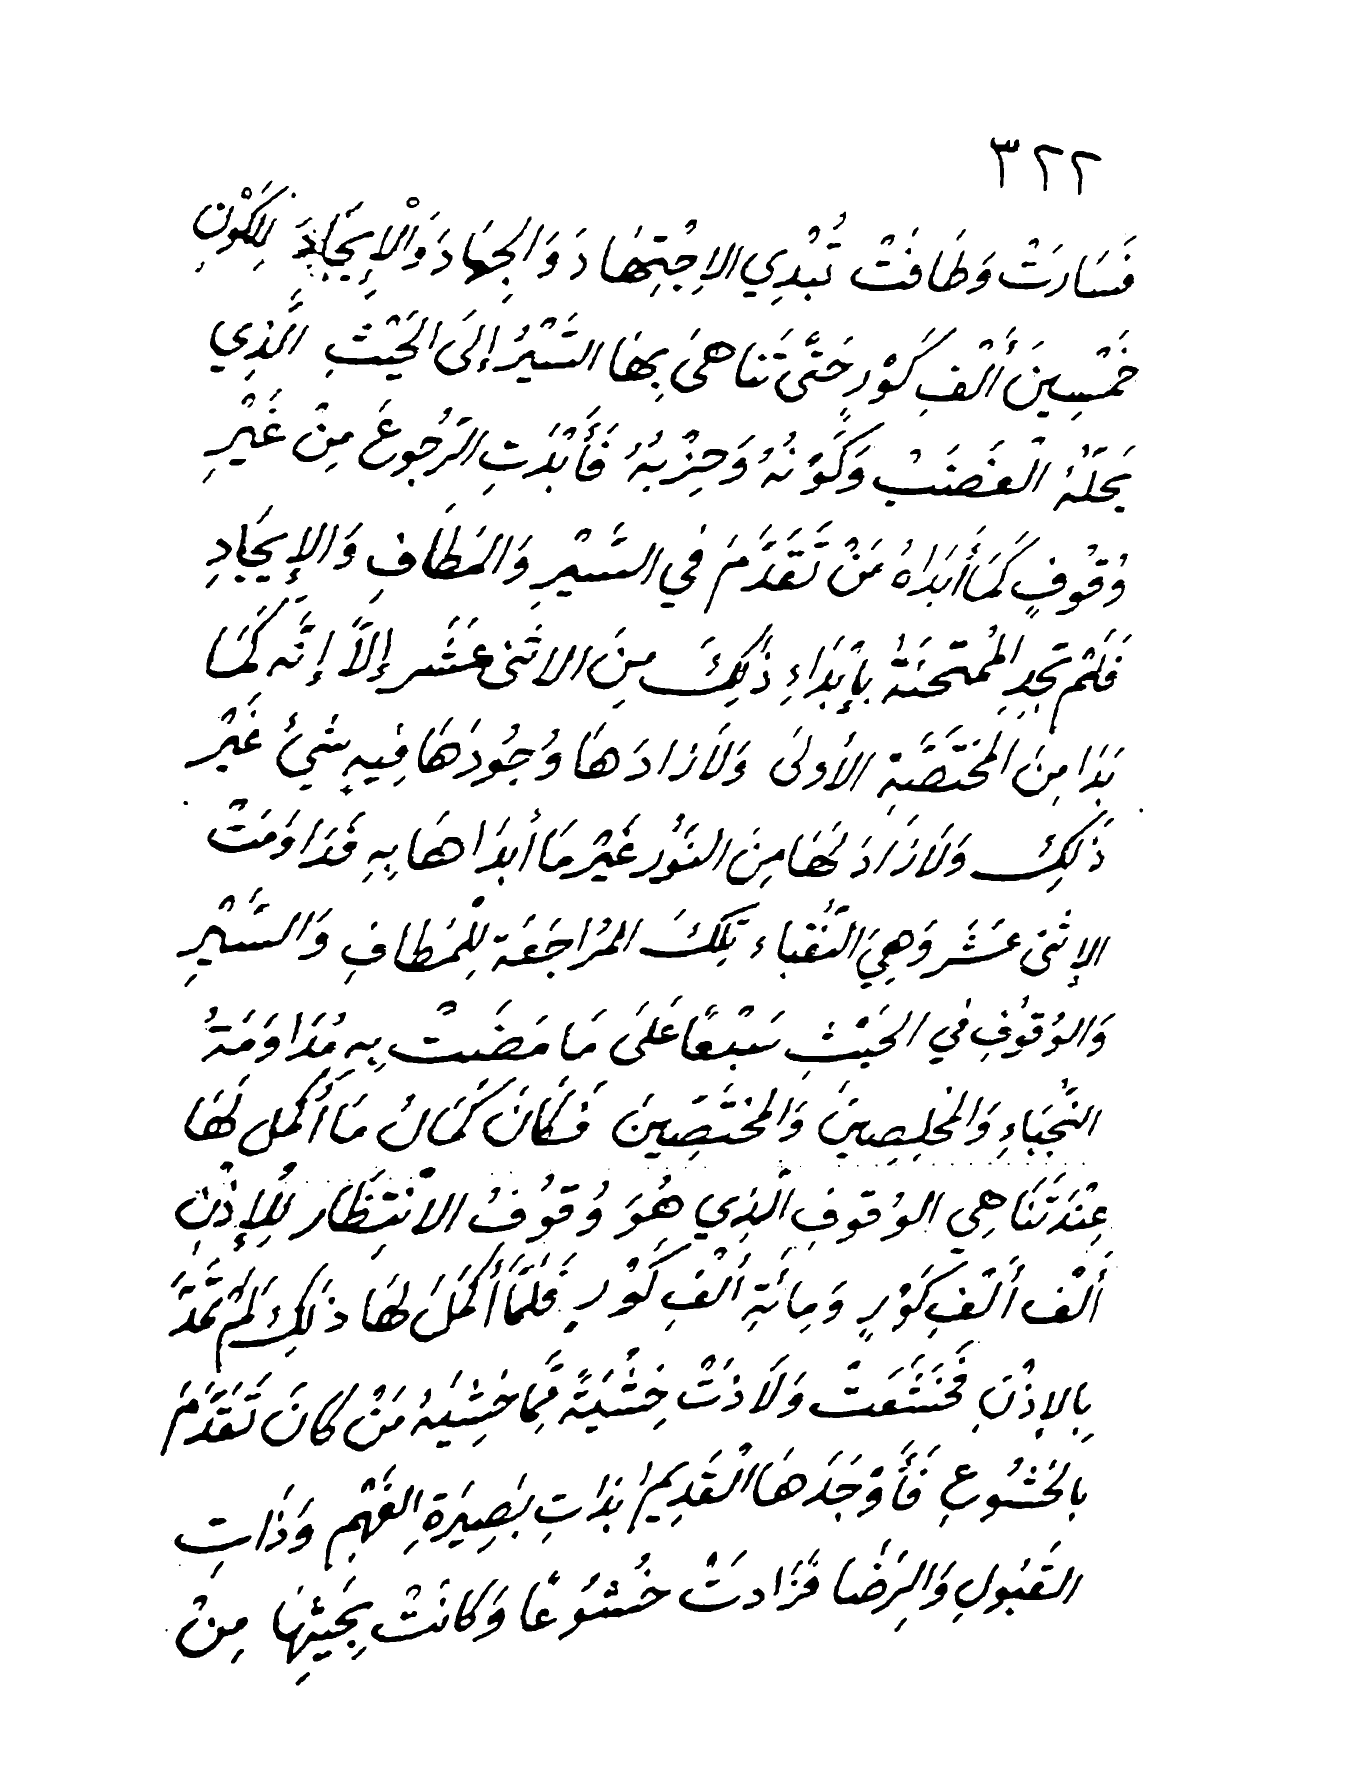 ٣٢٢
فَسَارَتْ وَطَافَتْ تُبْدِي الاِجْتِهَادَ وَالجِهَادَ وَالْإِيجَادَ لِلكَوْنِ
خَمْسِينَ أَلْفِ كَوْرٍ حَتَّى تَنَاهَى بِهَا السَّيْرُ إلَى الحَيْثِ الَّذِي
يَحِلّهُ الْغَضَبُ وَكَوْنُهُ وَحِزْبُهُ فَأَبْدَتِ الرُّجُوعَ مِنْ غَيْرِ
وُقُوفٍ كَمَا أَبْدَاهُ مَنْ تَقَدَّمَ فِي السَّيْرِ وَالمَطَافِ وَالإِيجَادِ
فَلَمْ تَجِدِ المُمْتَحَنَةُ بِإِبْدَاءِ ذَلِكَ مِنَ الاثنى عَشَر إلاَّ إنَّه كَمَا
بَدَا مِنَ المُخْتَصَّةِ الأُولَى وَلاَ زَادَهَا وُجُودَهَا فِيهِ شَيْئ غَيْر
ذَلِكَ وَلاَ زَادَ لَهَا مِنَ النُّورِ غَيْر مَا أَبْدَاهَا بِهِ فَدَاوَمَتْ
الإثنى عَشَر وَهِيَ النُّقَبَاء تِلكَ المُرَاجَعَة لِلْمَطَافِ وَالسَّيْرِ
وَالوُقُوفِ فِي الحَيْثِ سَبْعًا عَلَى مَا مَضَتْ بِهِ مُدَاوَمَةُ
النُّجَبَاءِ وَالمُخْلِصِينَ وَالمُخْتَصِّينَ فَكَانَ كَمَالُ مَا أَكْمَلَ لَهَا
عِنْدَ تَنَاهِي الوُقُوفِ الَّذِي هُوَ وُقُوفُ الاْنْتِظَارِ لِلْإِذْنِ
أَلْف أَلْفِ كَوْرٍ وَمِائَةِ أَلْفِ كَوْرٍ فَلَمَّا أَكْمَلَ لَهَا ذَلِكَ لَمْ تُمَدَّ
بِالإِذْنِ فَخَشَعَتْ وَلاَذَتْ خِشْيَةً مِمَّا خَشِيَهُ مَنْ كَانَ تَقَدَّمَ
بِالخُشُوعِ فَأَوْجَدَهَا الْقَدِيمُ بِذَاتِ بَصِيرَةِ الفَهْمِ وَذَاتِ
القَبُولِ وَالرِّضَا فَزَادَتْ خُشُوعًا وَكَانَتْ بِحَيْثِهَا مِنْ